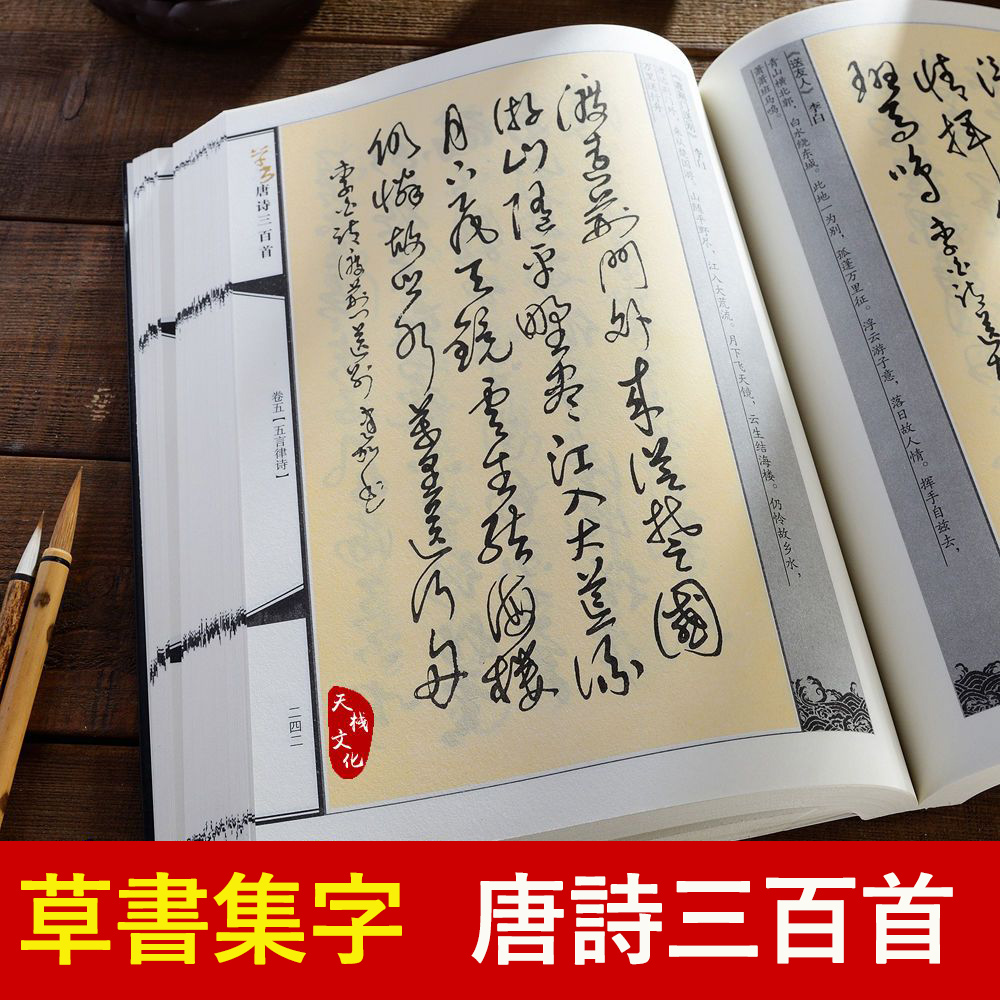 《送友人》 李白
青山横北郭，白水绕东城。此地一为别，孤蓬万里征。浮云游子意，落日故人情。挥手自兹去，
萧萧班马鸣。
情挥
班马鸣 李白诗送友
《渡荆门送别》 李白
渡远荆门外，来从楚国游。山随平野尽，江入大荒流。月下飞天镜，云生结海楼。仍怜故乡水，
万里送行舟。
渡远荆门外来从楚国
游山随平野尽江入大荒流
月下飞天镜云生结海楼
仍怜故乡水万里送行舟
李白诗渡荆门送别
草
唐诗三百首
卷五【五言律诗】
二四二
天栈文化
草書集字 唐詩三百首